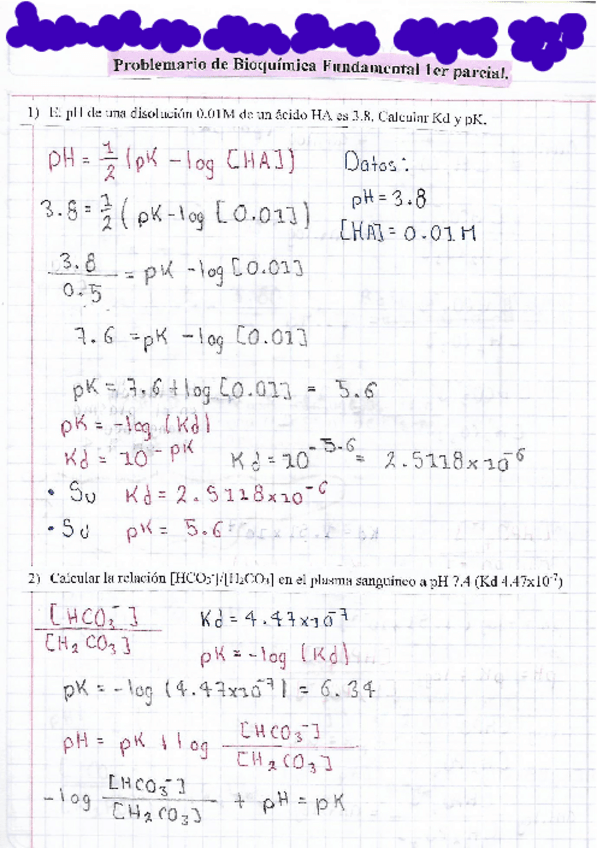 Problemario de Bioquímica Fundamental 1er parcial.
1) El pH de una disolución 0.01M de un ácido HA es 3.8. Calcular Kd y pK.
pH = 1/2 (pK - log [HA]) Datos:
3.8 = 1/2 (pK - log [0.01]) pH = 3.8
[HA] = 0.01 M
3.8/0.5 = pK - log [0.01]
7.6 = pK - log [0.01]
pK = 7.6 + log [0.01] = 5.6
pK = -log (Kd)
Kd = 10^-pK Kd = 10^-5.6 = 2.5118x10^-6
• Su Kd = 2.5118x10^-6
• Su pK = 5.6
2) Calcular la relación [HCO₃⁻]/[H₂CO₃] en el plasma sanguíneo a pH 7.4 (Kd 4.47x10⁻⁷)
[HCO₃⁻]/[H₂CO₃] Kd = 4.47x10⁻⁷
pK = -log (Kd)
pK = -log (4.47x10⁻⁷) = 6.34
pH = pK + log [HCO₃⁻]/[H₂CO₃]
-log [HCO₃⁻]/[H₂CO₃] + pH = pK